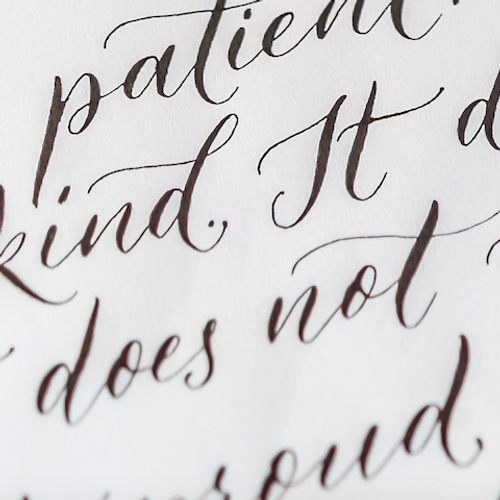 patient.
kind. It d
does not
proud